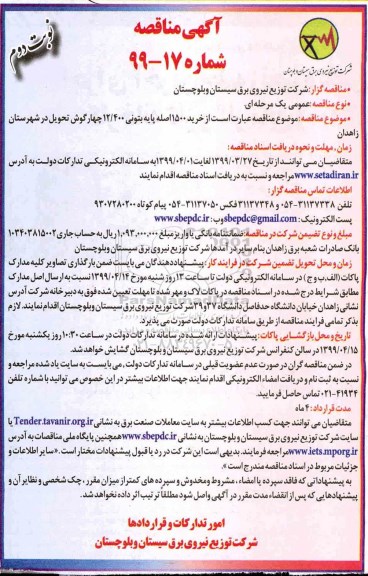 آگهی مناقصه
شماره ۱۷-۹۹
نوبت دوم
شرکت توزیع نیروی برق سیستان و بلوچستان
• مناقصه گزار: شرکت توزیع نیروی برق سیستان وبلوچستان
• نوع مناقصه: عمومی یک مرحله ای
• موضوع مناقصه: موضوع مناقصه عبارت است از خرید ۱۵۰۰ اصله پایه بتونی ۱۲/۴۰۰ چهارگوش تحویل در شهرستان
زاهدان
زمان، مهلت و نحوه دریافت اسناد مناقصه:
متقاضیان می توانند از تاریخ ۱۳۹۹/۰۳/۲۷ لغایت ۱۳۹۹/۰۴/۰۱ به سامانه الکترونیکی تدارکات دولت به آدرس
www.setadiran.ir مراجعه و نسبت به دریافت اسناد مناقصه اقدام نمایند
اطلاعات تماس مناقصه گزار:
تلفن ۳۱۱۳۷۳۳۸-۰۵۴ و ۳۱۱۳۷۳۴۸ فکس ۳۱۱۳۷۰۵۰-۰۵۴ پیام کوتاه ۹۳۰۷۲۸۰۲۰۰
پست الکترونیک: sbepdc@gmail.com وب: www.sbepdc.ir
مبلغ و نوع تضمین شرکت در مناقصه: ضمانتنامه بانکی یا واریز مبلغ ۱,۰۹۳,۰۰۰,۰۰۰ ریال به حساب جاری ۱۰۳۴۰۳۸۱۵۰۰۲
بانک صادرات شعبه برق زاهدان بنام سایر درآمدها شرکت توزیع نیروی برق سیستان وبلوچستان
زمان و محل تحویل تضمین شرکت در فرایند کار: پیشنهاددهندگان می بایست ضمن بارگذاری تصاویر کلیه مدارک
پاکات (الف، ب و ج) در سامانه الکترونیکی دولت تا ساعت ۱۳ روز شنبه مورخ ۱۳۹۹/۰۴/۱۴ نسبت به ارسال اصل مدارک
مطابق شرایط درج شده در اسناد مناقصه در پاکات لاک و مهر شده تا مهلت تعیین شده فوق به دبیرخانه شرکت آدرس
نشانی زاهدان خیابان دانشگاه حدفاصل دانشگاه ۳۷ و ۳۹ شرکت توزیع نیروی برق سیستان وبلوچستان اقدام نمایند. لازم
بذکر تمامی فرایند مناقصه از طریق سامانه تدارکات دولت صورت می پذیرد.
تاریخ و محل بازگشایی پاکات: پیشنهادات ارائه شده در سامانه تدارکات دولت در ساعت ۱۰:۳۰ روز یکشنبه مورخ
۱۳۹۹/۰۴/۱۵ در سالن کنفرانس شرکت توزیع نیروی برق سیستان و بلوچستان گشایش خواهد شد.
در ضمن مناقصه گران در صورت عدم عضویت قبلی در سامانه تدارکات دولت، می بایست به سایت یاد شده مراجعه و
نسبت به ثبت نام و دریافت امضاء الکترونیکی اقدام نمایند جهت اطلاعات بیشتر در این خصوص می توانید با شماره تلفن
۴۱۹۳۴-۰۲۱ تماس حاصل فرمایید.
مدت قرارداد: ۴ ماه
متقاضیان می توانند جهت کسب اطلاعات بیشتر به سایت معاملات صنعت برق به نشانی Tender.tavanir.org.ir یا
سایت شرکت توزیع نیروی برق سیستان و بلوچستان به نشانی www.sbepdc.ir همچنین پایگاه ملی مناقصات به آدرس
www.iets.mporg.ir مراجعه فرمایند. بدیهی است این شرکت در رد یا قبول پیشنهادات مختار است. « سایر اطلاعات و
جزئیات مربوط در اسناد مناقصه مندرج است ».
به پیشنهاداتی که فاقد سپرده یا امضاء، مشروط و مخدوش و سپرده های کمتر از میزان مقرر، چک شخصی و نظایر آن و
پیشنهادهایی که پس از انقضاء مدت مقرر در آگهی واصل شود مطلقاً ترتیب اثر داده نخواهد شد.
امور تدارکات و قراردادها
شرکت توزیع نیروی برق سیستان وبلوچستان